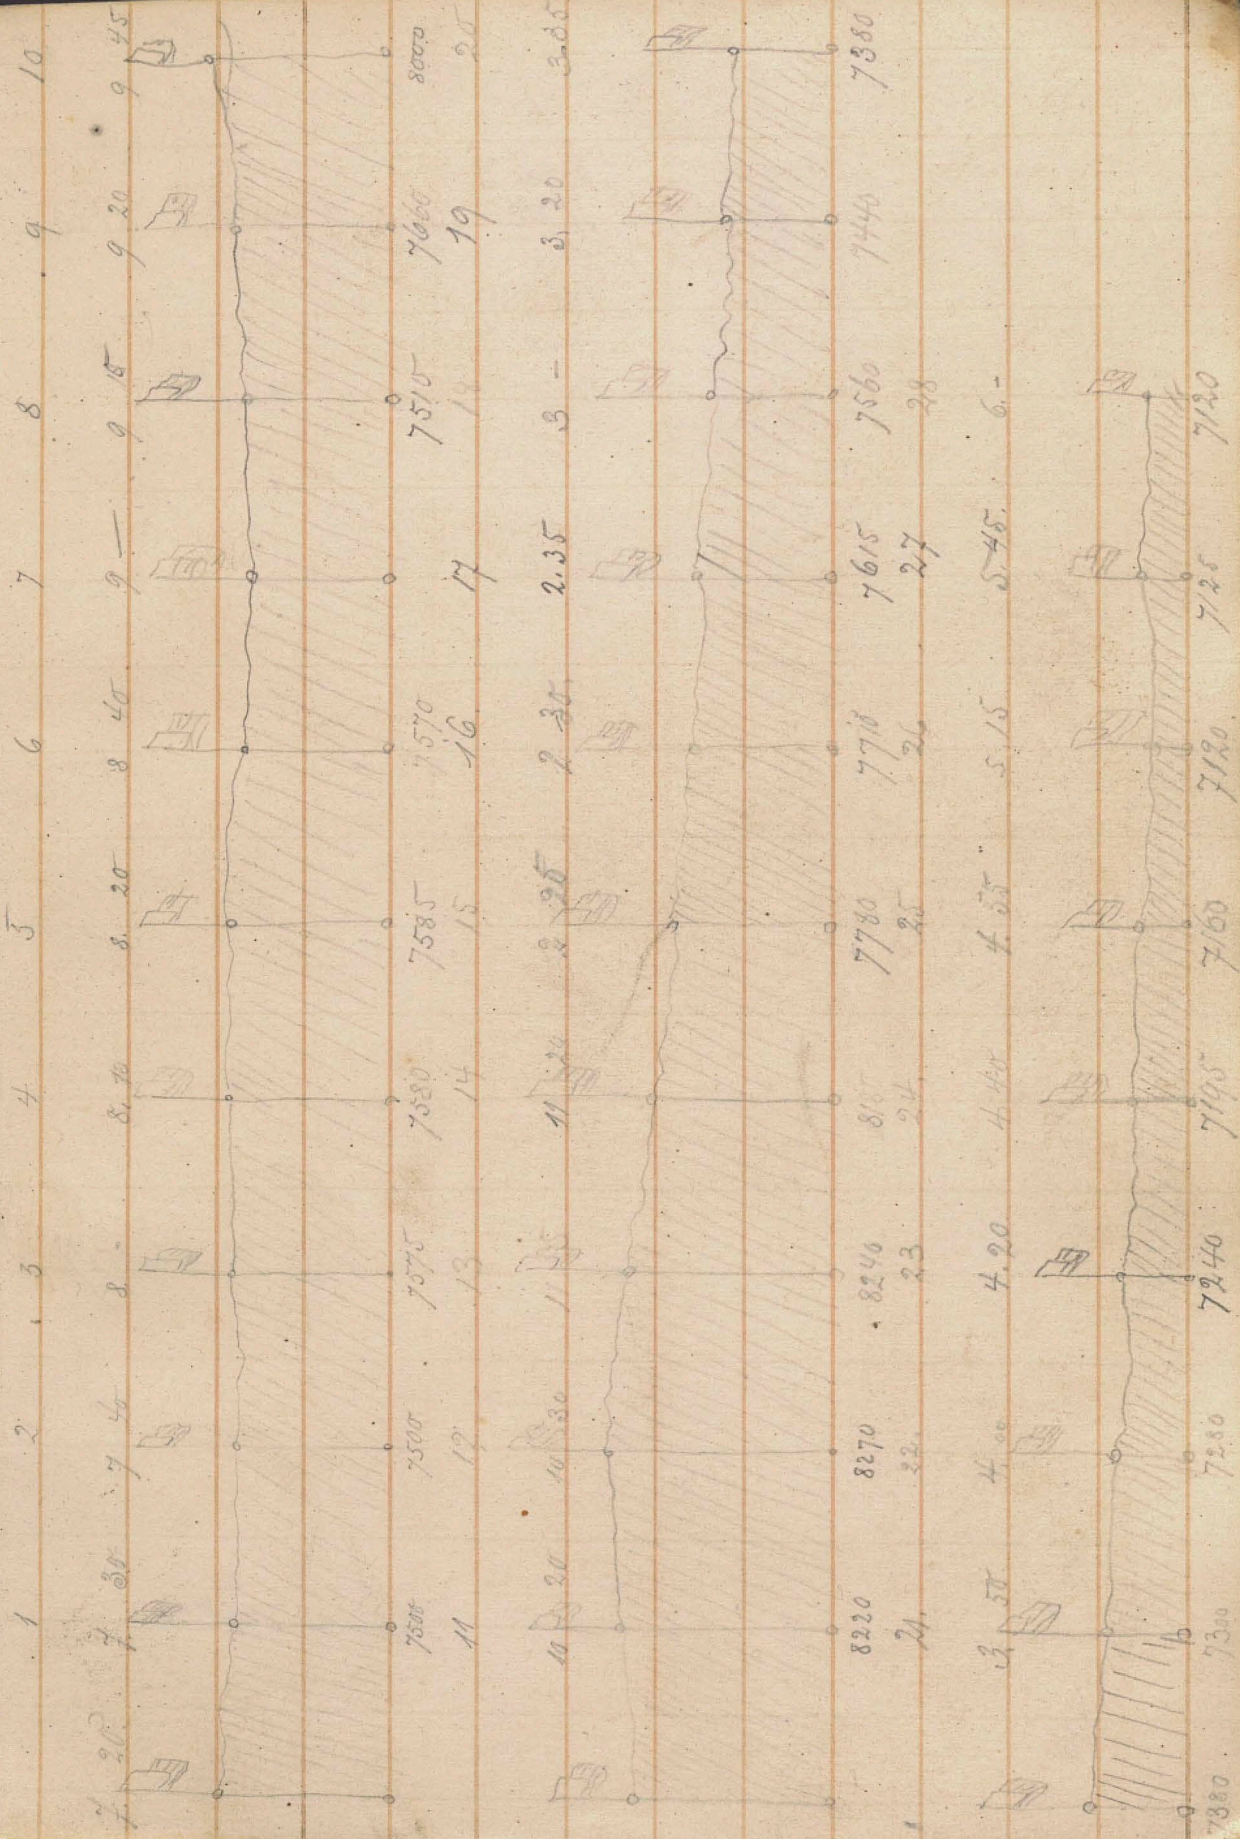 1 2 3 4 5 6 7 8 9 10
7. 20. 7. 30 7 40 8. - 8. 10 8. 20 8 40 9 — 9 15 9 20 9 45
7500 7500 7575 7580 7585 7570 7515 7600 8000
11 12 13 14 15 16 17 18 19 20
10 20 10 30 11 11 20 2 25 2 30. 2.35 3 - 3. 20 3.35
8220 8270 8240 7780 7710 7615 7560 7440 7380
21. 22. 23 24 25 26 27 28
3. 50 4 00 4.20 4 40 4. 55 5 15 5.45. 6.-
7380 7300 7280 7240 7195 7160 7120 7125 7120